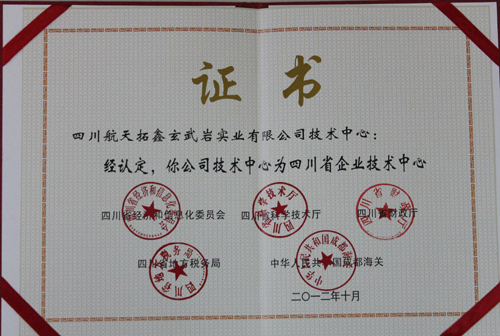 证书
四川航天拓鑫玄武岩实业有限公司技术中心：
经认定，你公司技术中心为四川省企业技术中心
四川省经济和信息化委员会 四川省科学技术厅 四川省财政厅
四川省地方税务局 中华人民共和国成都海关
二〇一二年十月